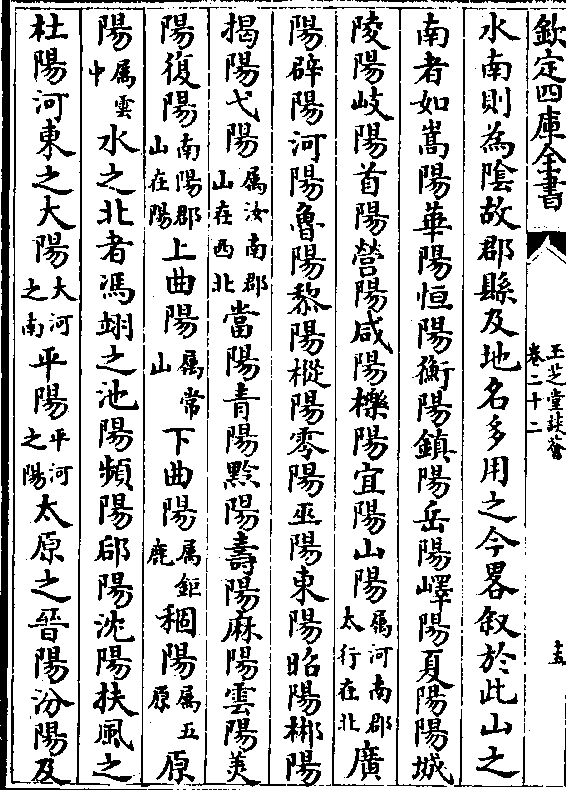 欽定四庫全書
玉芝堂談薈
卷二十二
十五
水南則為陰故郡縣及地名多用之今畧叙於此山之
南者如嵩陽華陽恒陽衡陽鎮陽岳陽嶧陽夏陽陽城
陵陽岐陽首陽營陽咸陽櫟陽宜陽山陽屬河南郡太行在北廣
陽辟陽河陽魯陽黎陽樅陽零陽巫陽東陽昭陽郴陽
揭陽弋陽屬汝南郡山在西北當陽青陽黔陽壽陽麻陽雲陽美
陽復陽南陽郡山在陽上曲陽屬常山下曲陽屬鉅鹿稒陽屬五原原
陽屬雲中水之北者馮翊之池陽頻陽郃陽沈陽扶風之
杜陽河東之大陽大河之南平陽平河之陽太原之晉陽汾陽及